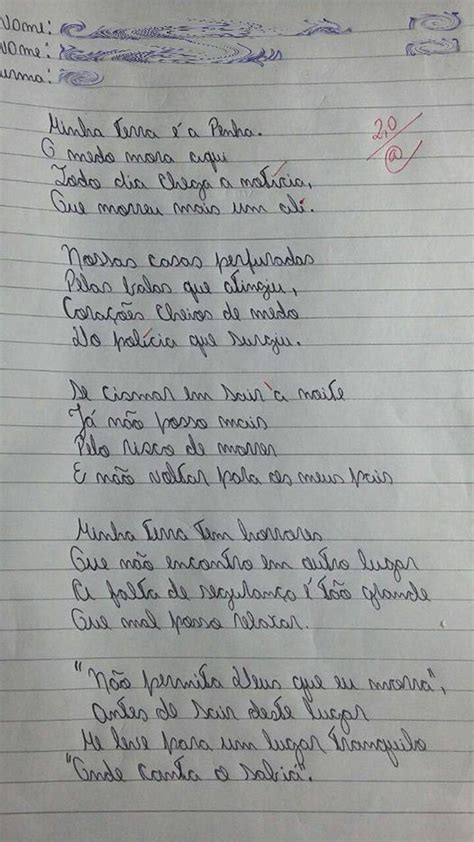 Nome:
Nome:
urma:
Minha terra é a Penha.
O medo mora aqui
Todo dia chega a notícia,
Que morreu mais um ali.
2,0
@
Nossas casas perfuradas
Pelas balas que atingiu,
Corações cheios de medo
Do polícia que surgiu.
Se cismar em sair à noite
Já não posso mais
Pelo risco de morrer
E não voltar para os meus pais
Minha terra tem horrores
Que não encontro em outro lugar
A falta de segurança é tão grande
Que mal posso relaxar.
"Não permita Deus que eu morra",
Antes de sair deste lugar
Me leve para um lugar tranquilo
"Onde canta o sabiá".